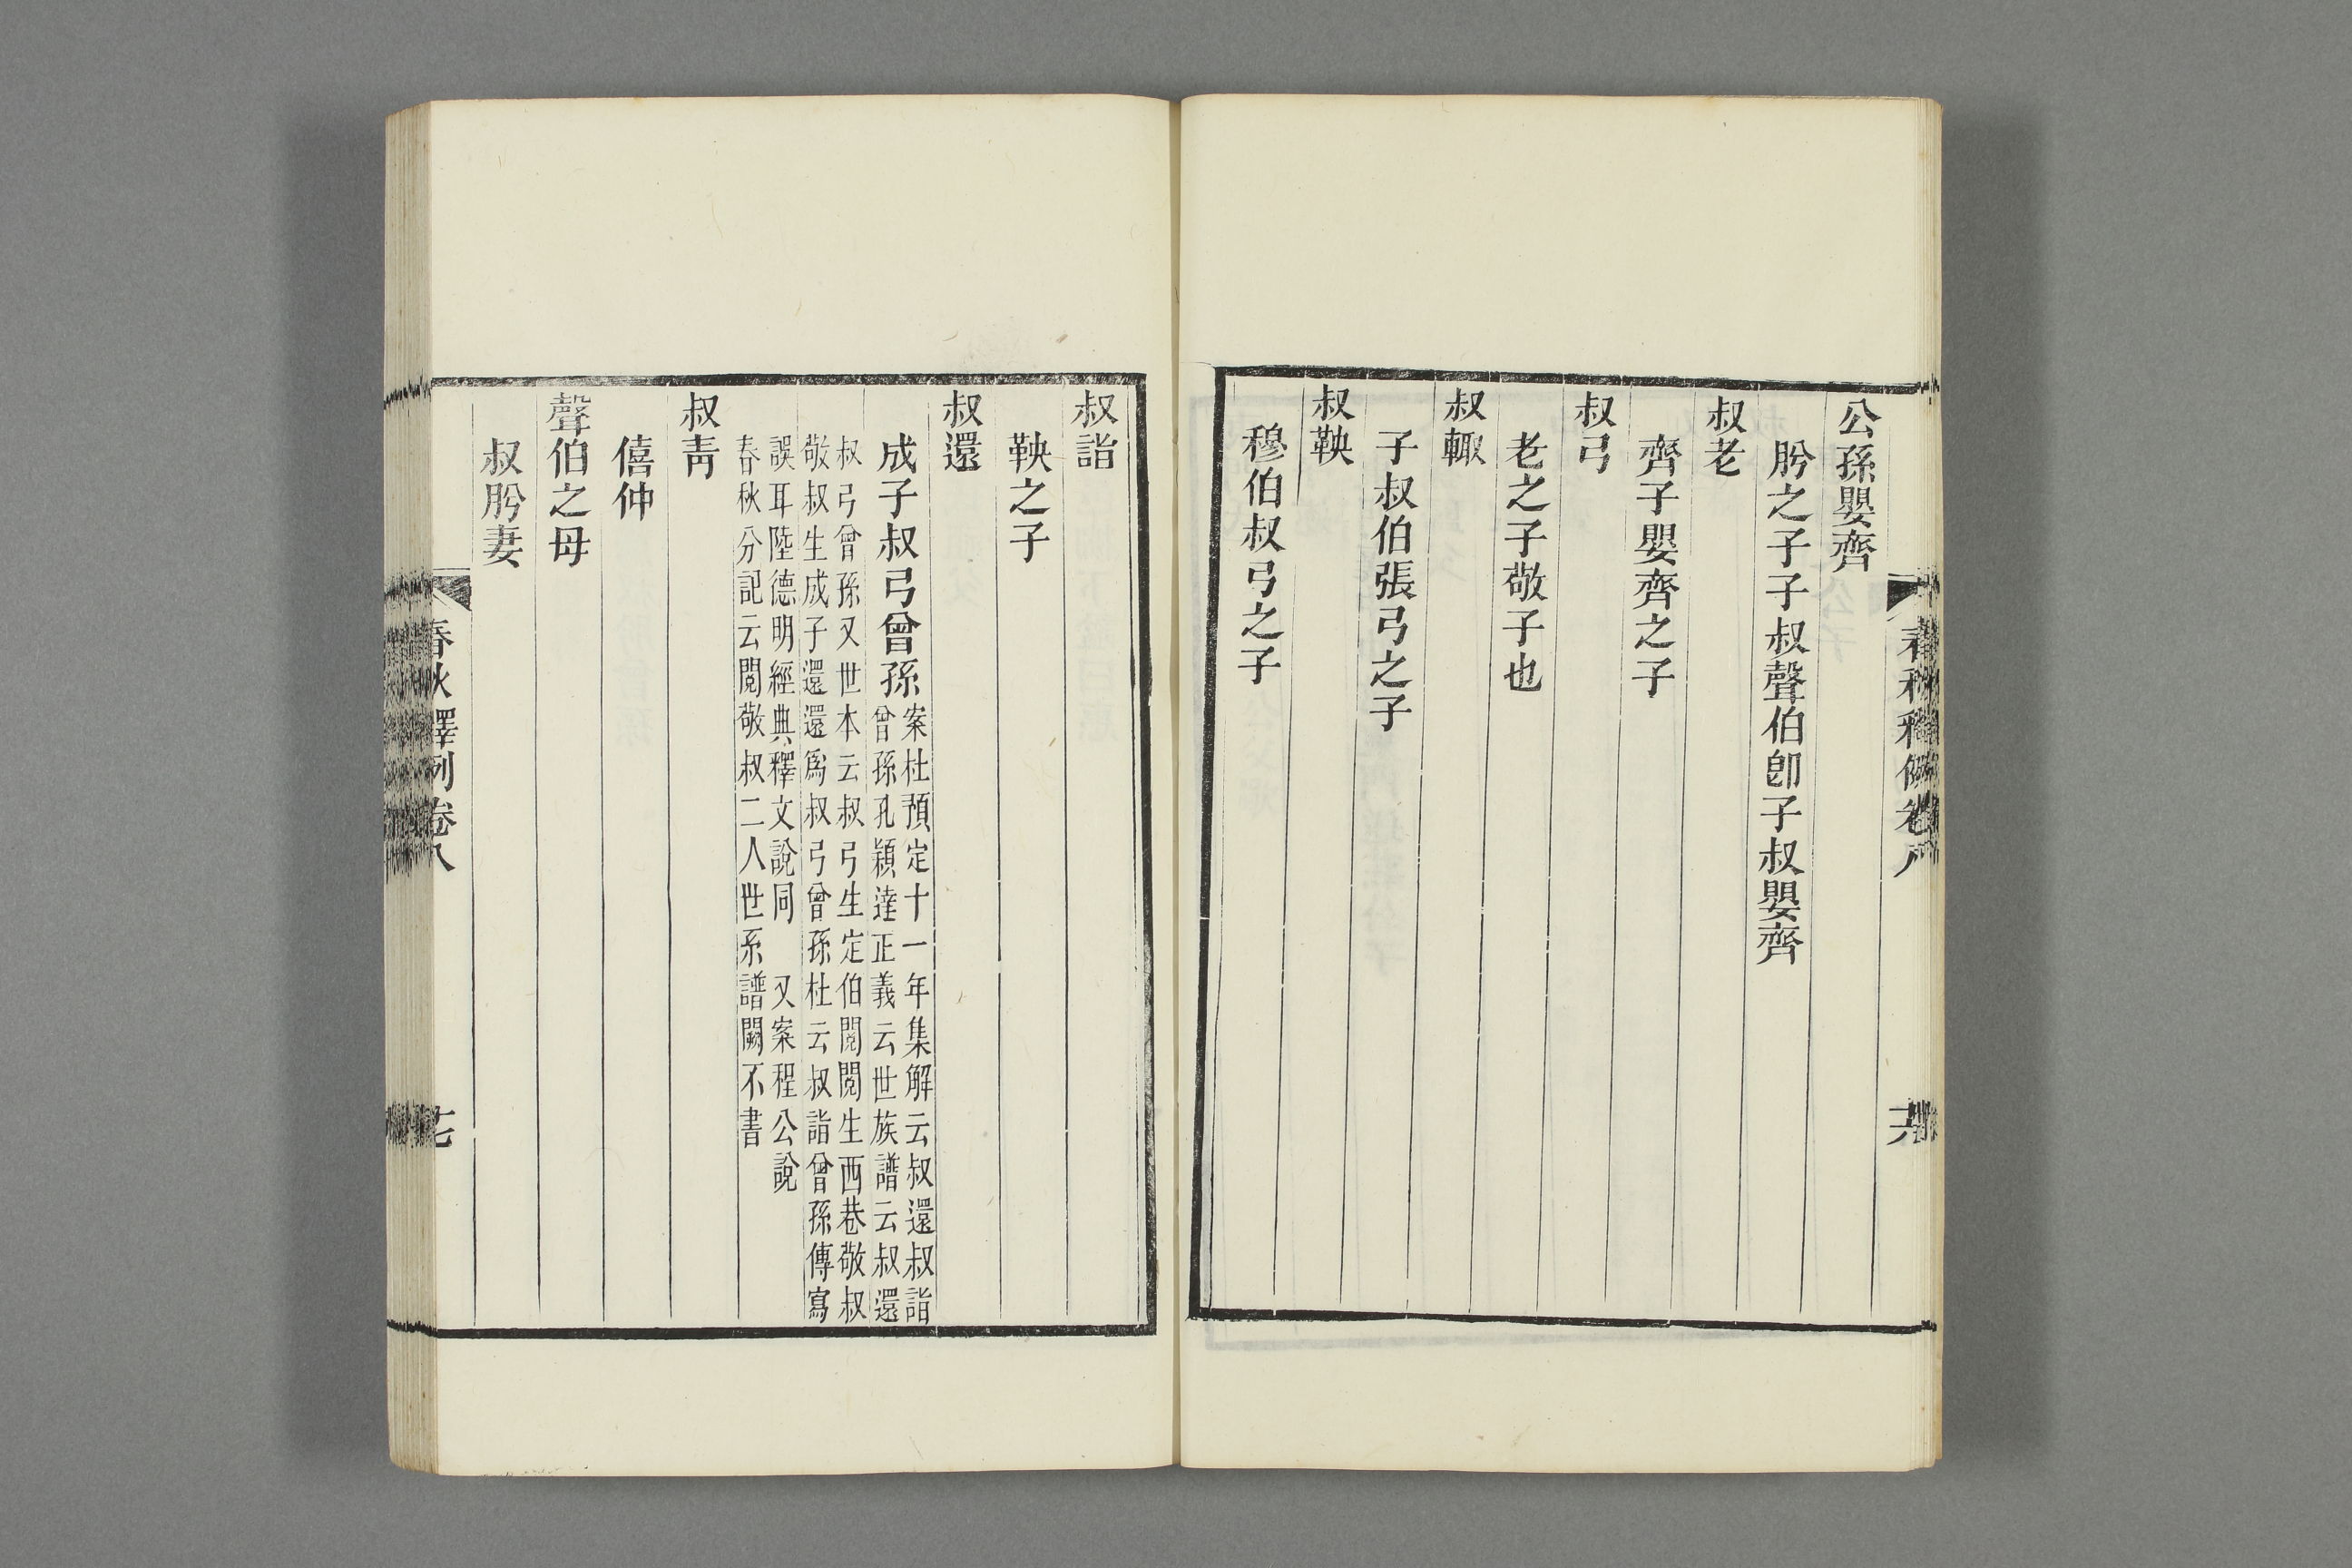 公孫嬰齊
肸之子子叔聲伯卽子叔嬰齊
叔老
齊子嬰齊之子
叔弓
老之子敬子也
叔輙
子叔伯張弓之子
叔鞅
穆伯叔弓之子
叔詣
鞅之子
叔還
成子叔弓曾孫案杜預定十一年集解云叔還叔詣
曾孫孔穎達正義云世族譜云叔還
叔弓曾孫又世本云叔弓生定伯閱閱生西巷敬叔
敬叔生成子還還爲叔弓曾孫杜云叔詣曾孫傳寫
誤耳陸德明經典釋文說同 又案程公說
春秋分記云閱敬叔二人世系譜闕不書
叔靑
僖仲
聲伯之母
叔肸妻
春秋釋例卷八